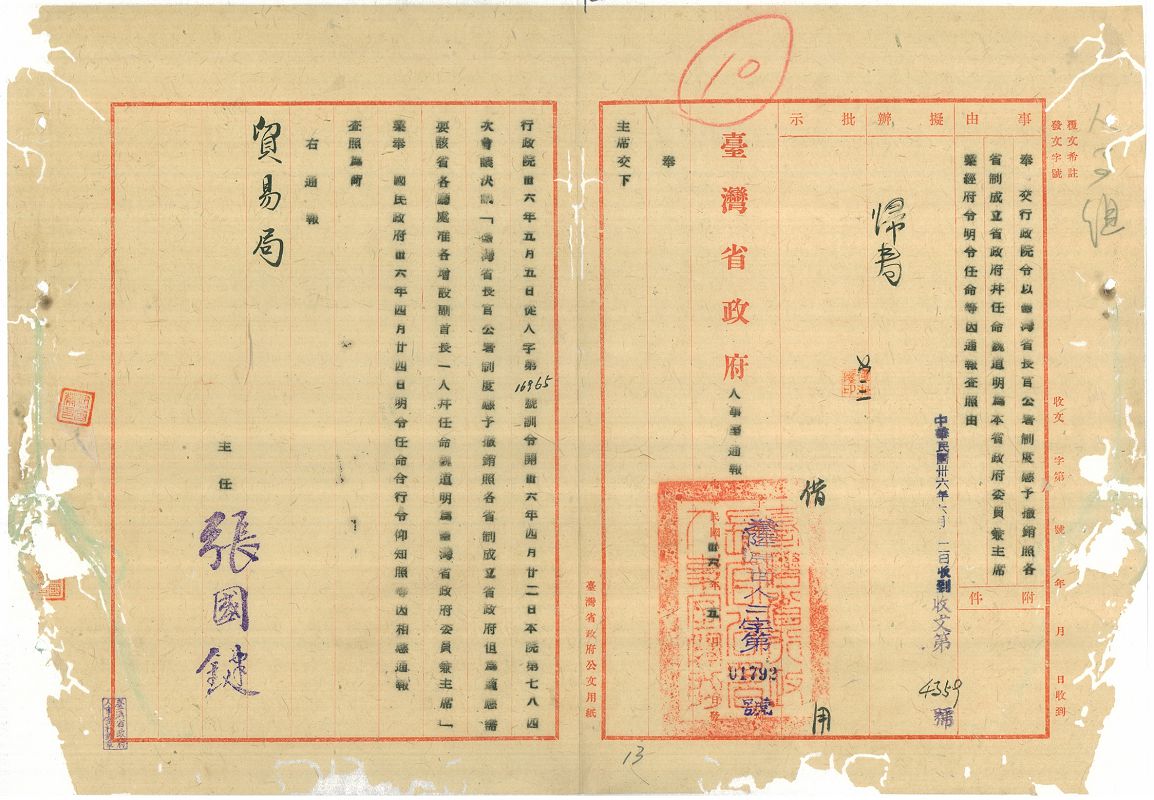 10
人事組
覆文希註
發文字號
收文 字第 號 年 月 日收到
事由
擬辦
批示
附件
奉 交行政院令以臺灣省長官公署制度應予撤銷照各
省制成立省政府幷任命魏道明爲本省政府委員兼主席
業經府令明令任命等因通報查照由
中華民國卅六年六月 二日收到
收文第
4359
號
歸書
臺灣省政府人事室通報
借
用
民國卅六年五月
府人三字第
01793
號
奉
主席交下
臺灣省政府公文用紙
行政院卅六年五月五日從人字第16965號訓令開卅六年四月廿二日本院第七八四
次會議決議「臺灣省長官公署制度應予撤銷照各省制成立省政府但爲適應需
要該省各廳處准各增設副首長一人幷任命魏道明爲臺灣省政府委員兼主席」
業奉 國民政府卅六年四月廿四日明令任命合行令仰知照等因相應通報
查照爲荷
右通報
貿易局
主任
張國鍵
13